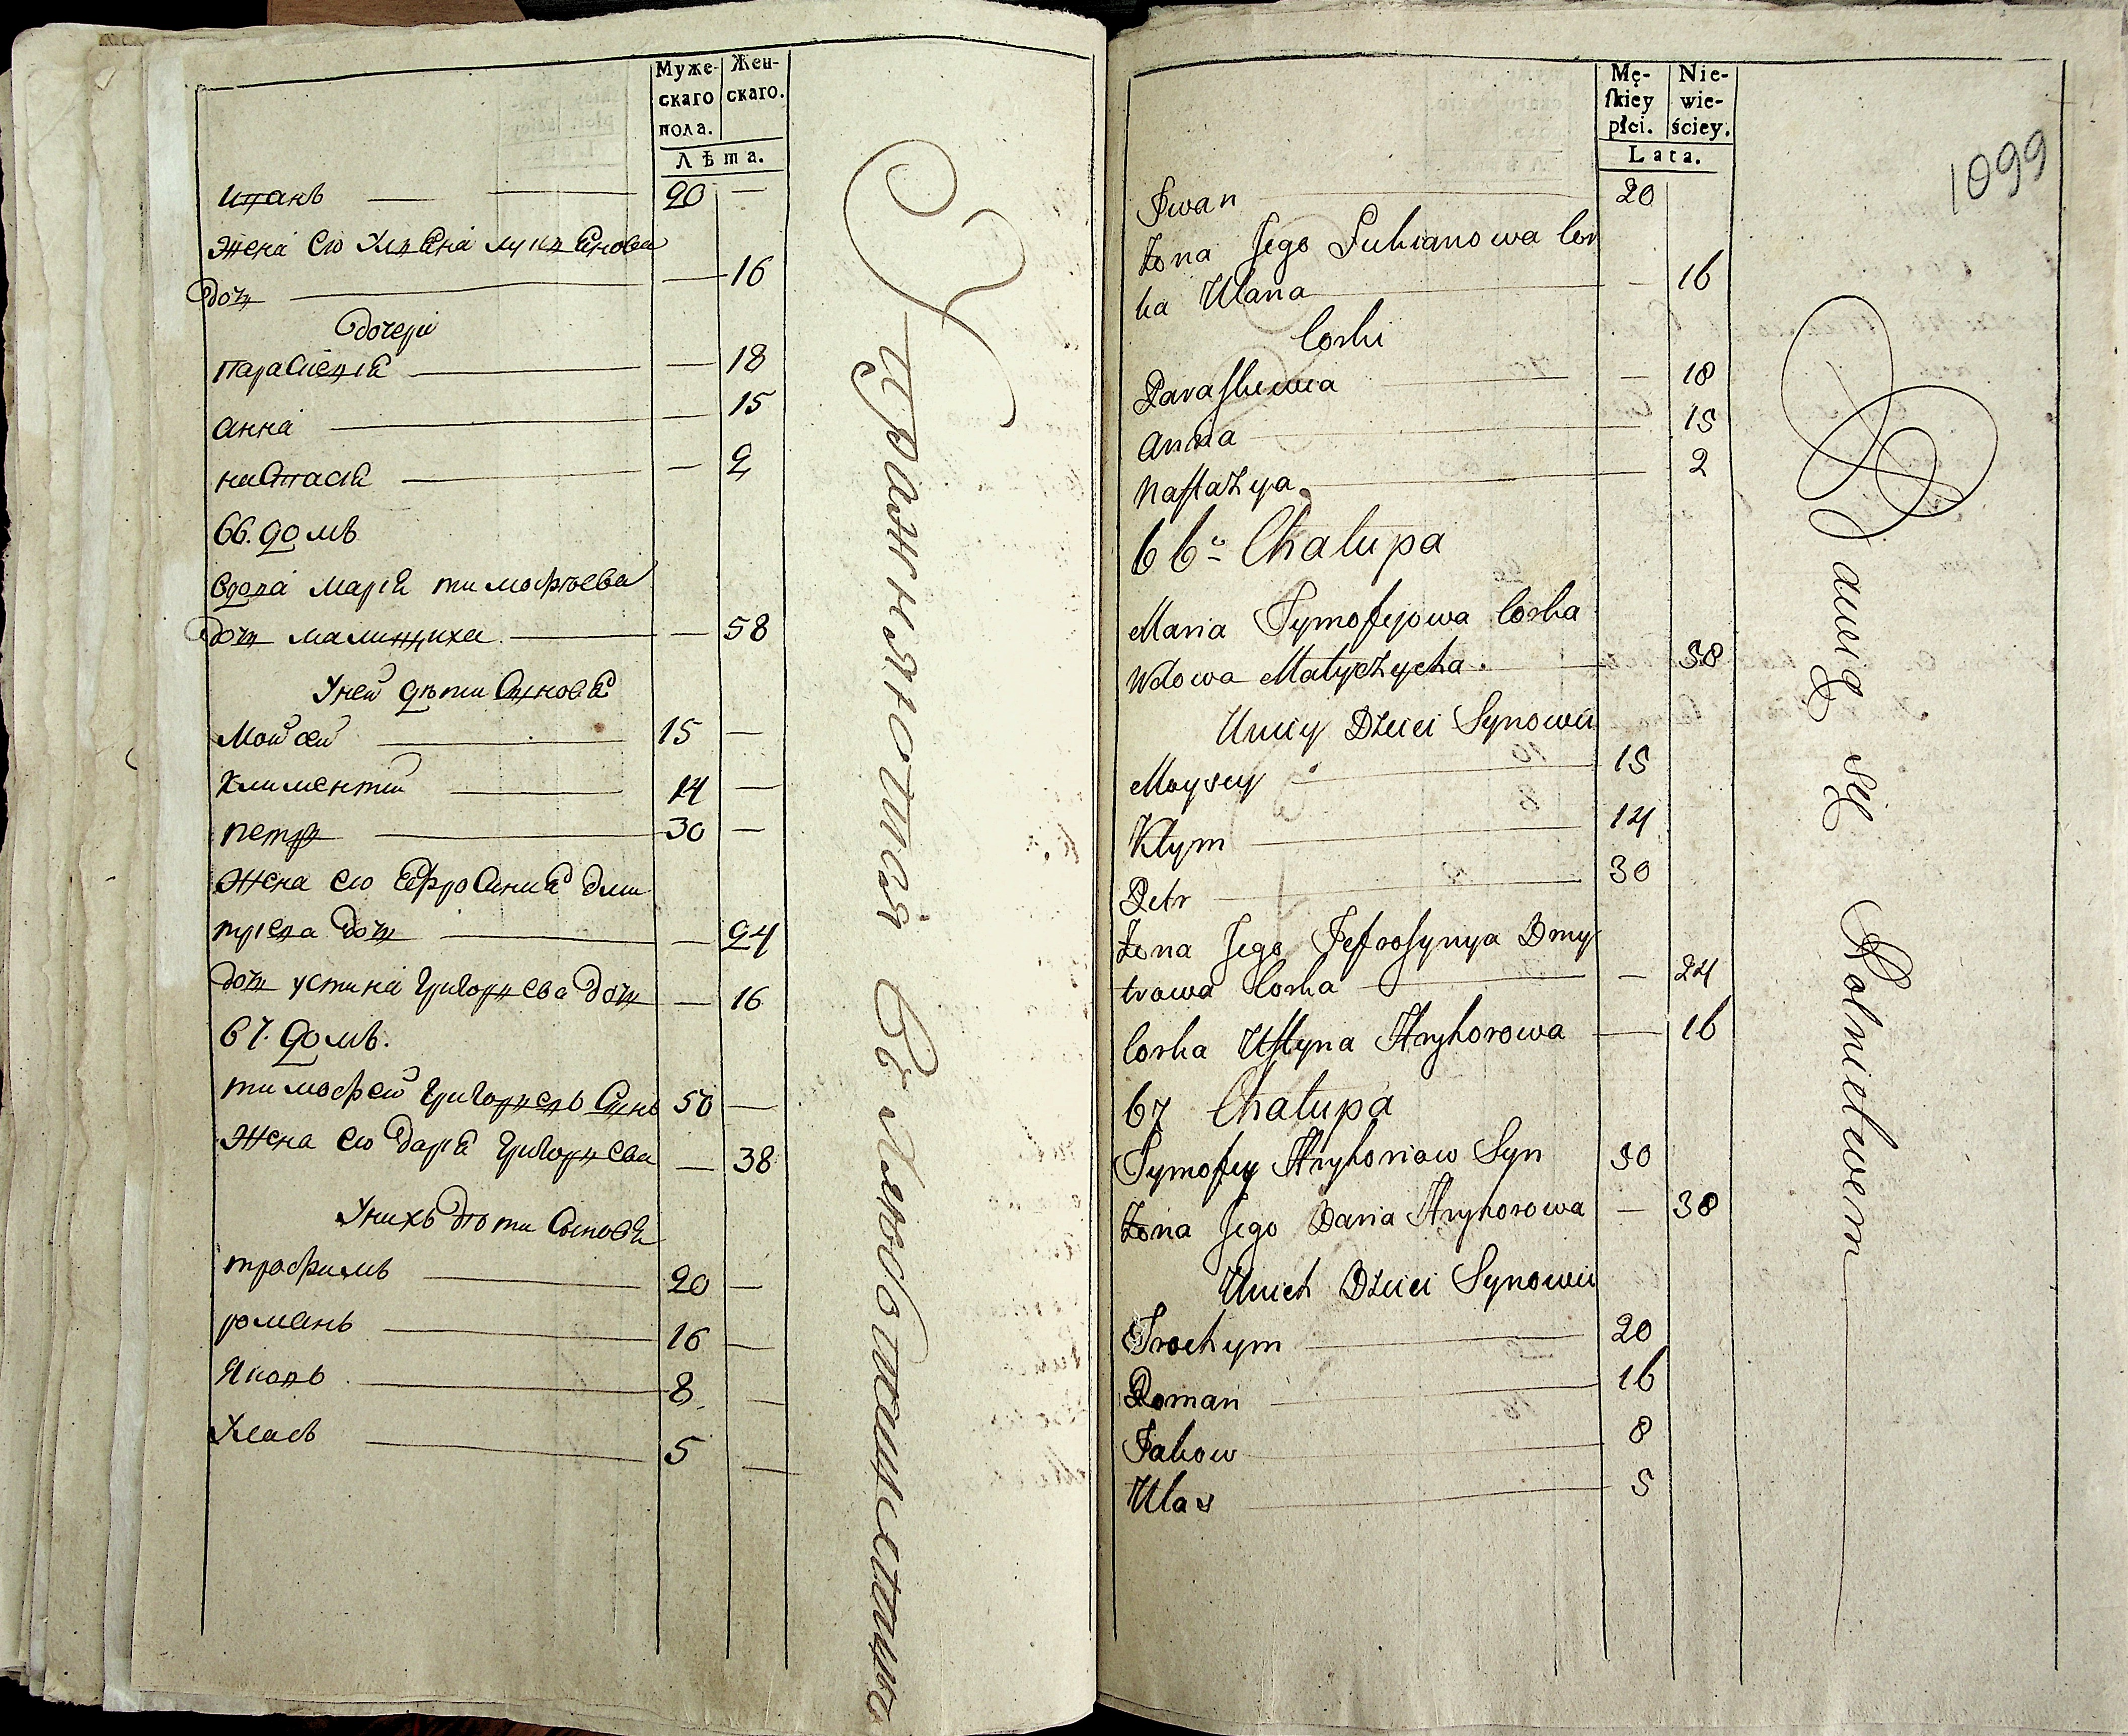 Муже-
скаго
пола.
Жен-
скаго.
Лѣта.
Иванъ — 20 —
Жена его Улияна Лукиянова
дочь — 16
дочери
Параскевия — 18
Анна — 15
Настасия — 2
66. домъ
вдова Мария Тимофѣева
дочь — 58
У ней дѣти Сыновья
Мойсей — 15 —
Климентий — 14 —
Петръ — 30 —
Жена его Ефросиния Дми
триева дочь — 24
дочь Устина Григорьева дочь — 16
67. домъ.
Тимофей Григорьевъ Сынъ 50 —
Жена его Дария Григорьева — 38
У нихъ дѣти Сыновья
Трофимъ — 20 —
Романъ — 16 —
Яковъ — 8 —
Уласъ — 5 —
Упражняются въ хлебопашествѣ
Mę-
ſkiey
płci.
Nie-
wie-
ściey.
Lata.
1099
Iwan — 20
Żona Jego Lukianowa Cor
ka Ulana — 16
Corki
Paraſkewia — 18
Anna — 15
Naſtazya — 2
66. Chałupa
Maria Tymofejowa Corka
Wdowa Małyczycha — 58
U niey Dzieci Synowie
Moysey — 15
Kłym — 14
Petr — 30
Żona Jego Jefroſynya Dmy
trowa Corka — 24
Corka Uſtyna Hryhorowa — 16
67 Chałupa
Tymofey Hryhoriow Syn 50
Żona Jego Daria Hryhorowa — 38
U nich Dzieci Synowie
Trochym — 20
Roman — 16
Jakow — 8
Ulas — 5
Bawią się Rolnictwem